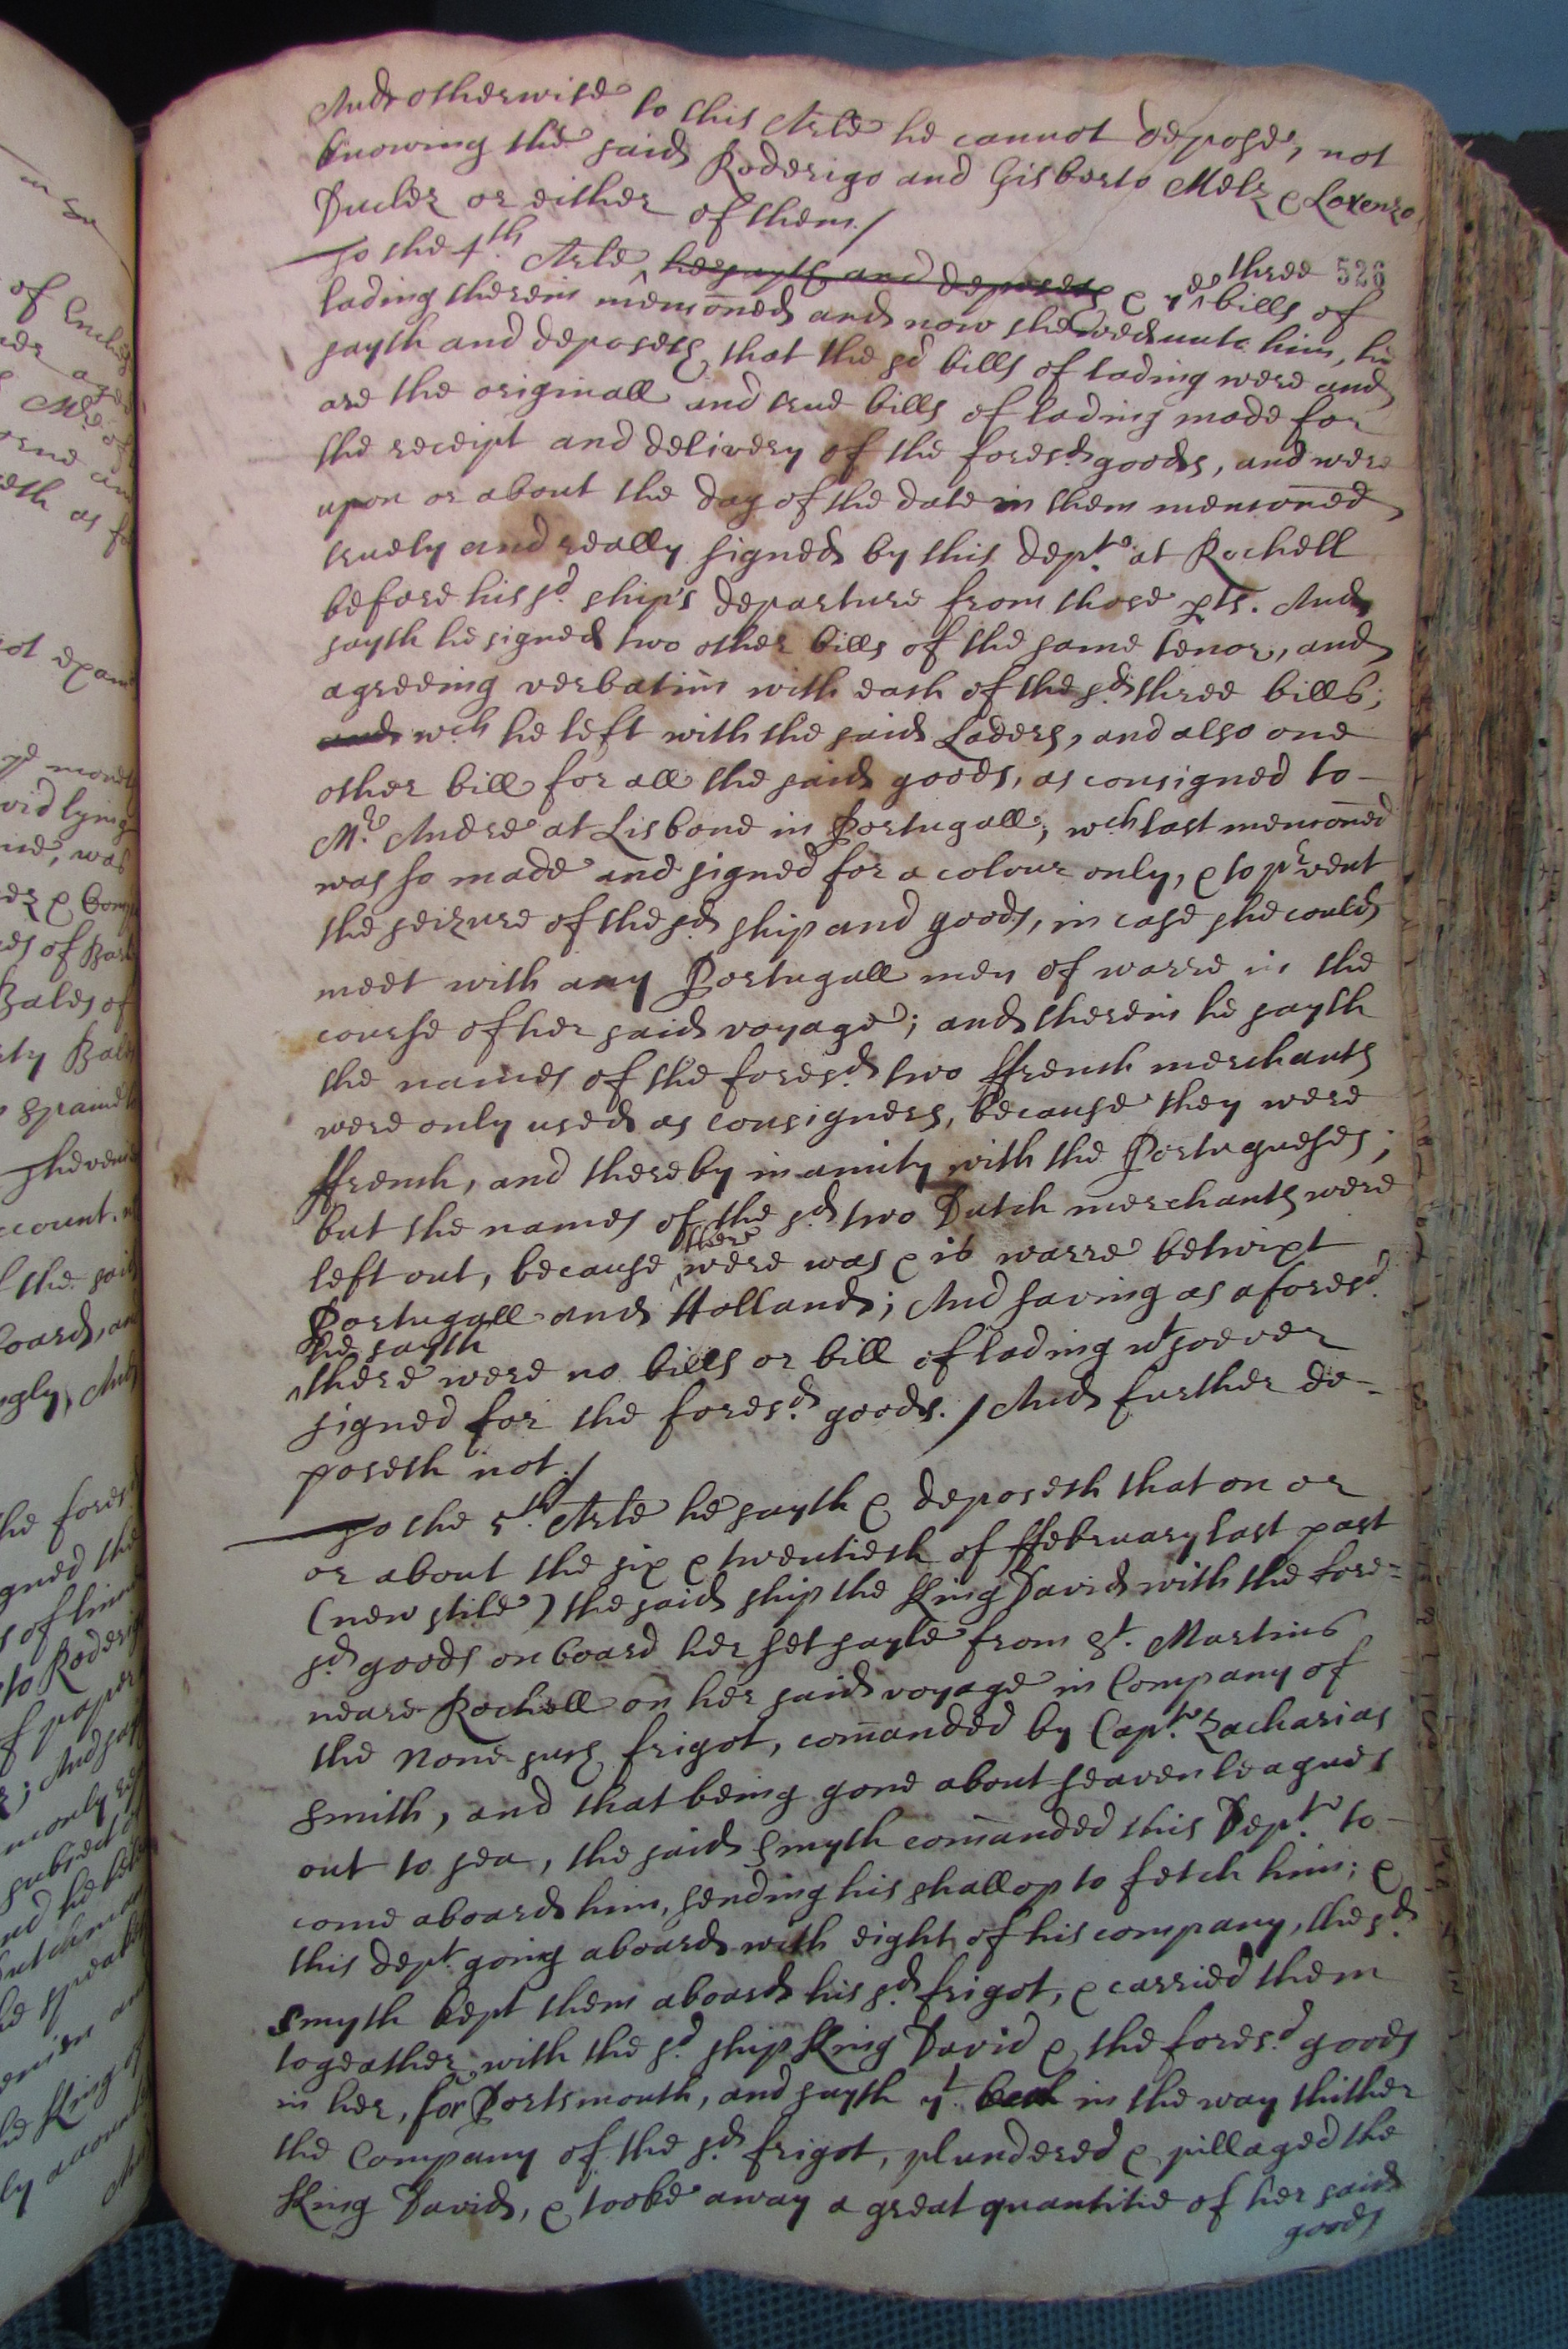 And otherwise to this Arle he cannot depose, not
knowing the said Roderigo and Gisberto Melz & Lorenzo
Ducler or either of them./
To the 4th. Arle he sayth and deposeth & ye three bills of 526
lading therein menc̄oned and now shewed unto him, he
sayth and deposeth that the sd bills of lading were and
are the originall and true bills of lading made for
the receipt and delivery of the foresd. goods, and were
upon or about the day of the date in them menc̄oned
truely and really signed by this dept. at Rochell
before his sd. ship's departure from those pts. And
sayth he signed two other bills of the same tenor, and
agreeing verbatim with each of the sd. three bills;
and wch he left with the said Laders, and also one
other bill for all the said goods, as consigned to-
Mr. Andre at Lisbone in Portugall; wch last menc̄oned
was so made and signed for a colour only, & to prvent
the seizure of the sd. ship and goods, in case she could
meet with any Portugall men of warre in the
course of her said voyage; and therein he sayth
the names of the foresd. two ffrench merchants
were only used as consigners, because they were
ffrench, and thereby in amity with the Portugueses;
but the names of the sd. two Dutch merchants were
left out, because there were was & is warre betwixt
Portugall and Holland; And saving as aforesd.
he sayth
there were no bills or bill of lading wtsoever
signed for the foresd. goods./ And further de-
poseth not./
To the 5th. Arle he sayth & deposeth that on or
or about the six & twentieth of ffebruary last past
(new stile) the said ship the King David with the fore=
sd. goods on board her set sayle from St. Martins
neare Rochell on her said voyage in Company of
the None such frigot, com̄anded by Capt. Zacharias
Smith, and that being gone about seaven leagues
out to sea, the said Smyth com̄anded this Dept. to-
come aboard him, sending his shallop to fetch him; &
this dept. going aboard with eight of his company, the sd.
Smyth kept them aboard his sd. frigot, & carried them
togeather with the sd. ship King David & the foresd. goods
in her, for Portsmouth, and sayth yt. in the way thither
the Company of the sd. frigot, plundered & pillaged the
King David, & tooke away a great quantitie of her said
goods